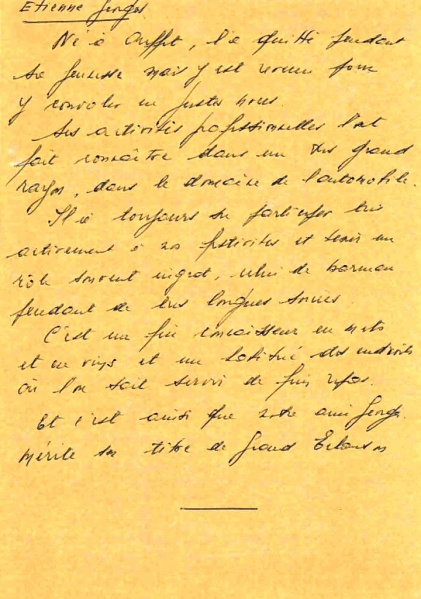 Etienne Georges
Né à Ouffet, l'a quitté pendant
sa jeunesse mais y est revenu pour
y convoler en justes noces.
Ses activités professionnelles l'ont
fait connaître dans un très grand
rayon, dans le domaine de l'automobile.
Il a toujours su participer très
activement à nos festivités et tenir un
rôle souvent ingrat, celui de barman
pendant de très longues soirées.
C'est un fin connaisseur en mets
et en vins et un habitué des endroits
où l'on sait servir de fins repas.
Et c'est ainsi que notre ami Georges
mérite son titre de Grand